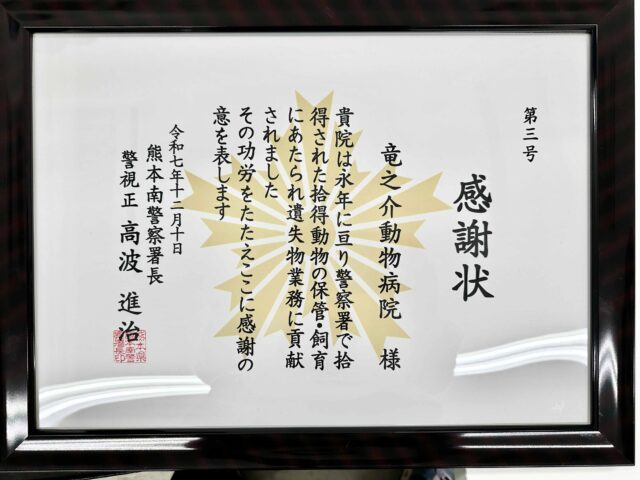 第三号
感謝状
竜之介動物病院 様
貴院は永年に亘り警察署で拾
得された拾得動物の保管・飼育
にあたられ遺失物業務に貢献
されました
その功労をたたえここに感謝の
意を表します
令和七年十二月十日
熊本南警察署長
警視正 高波 進治